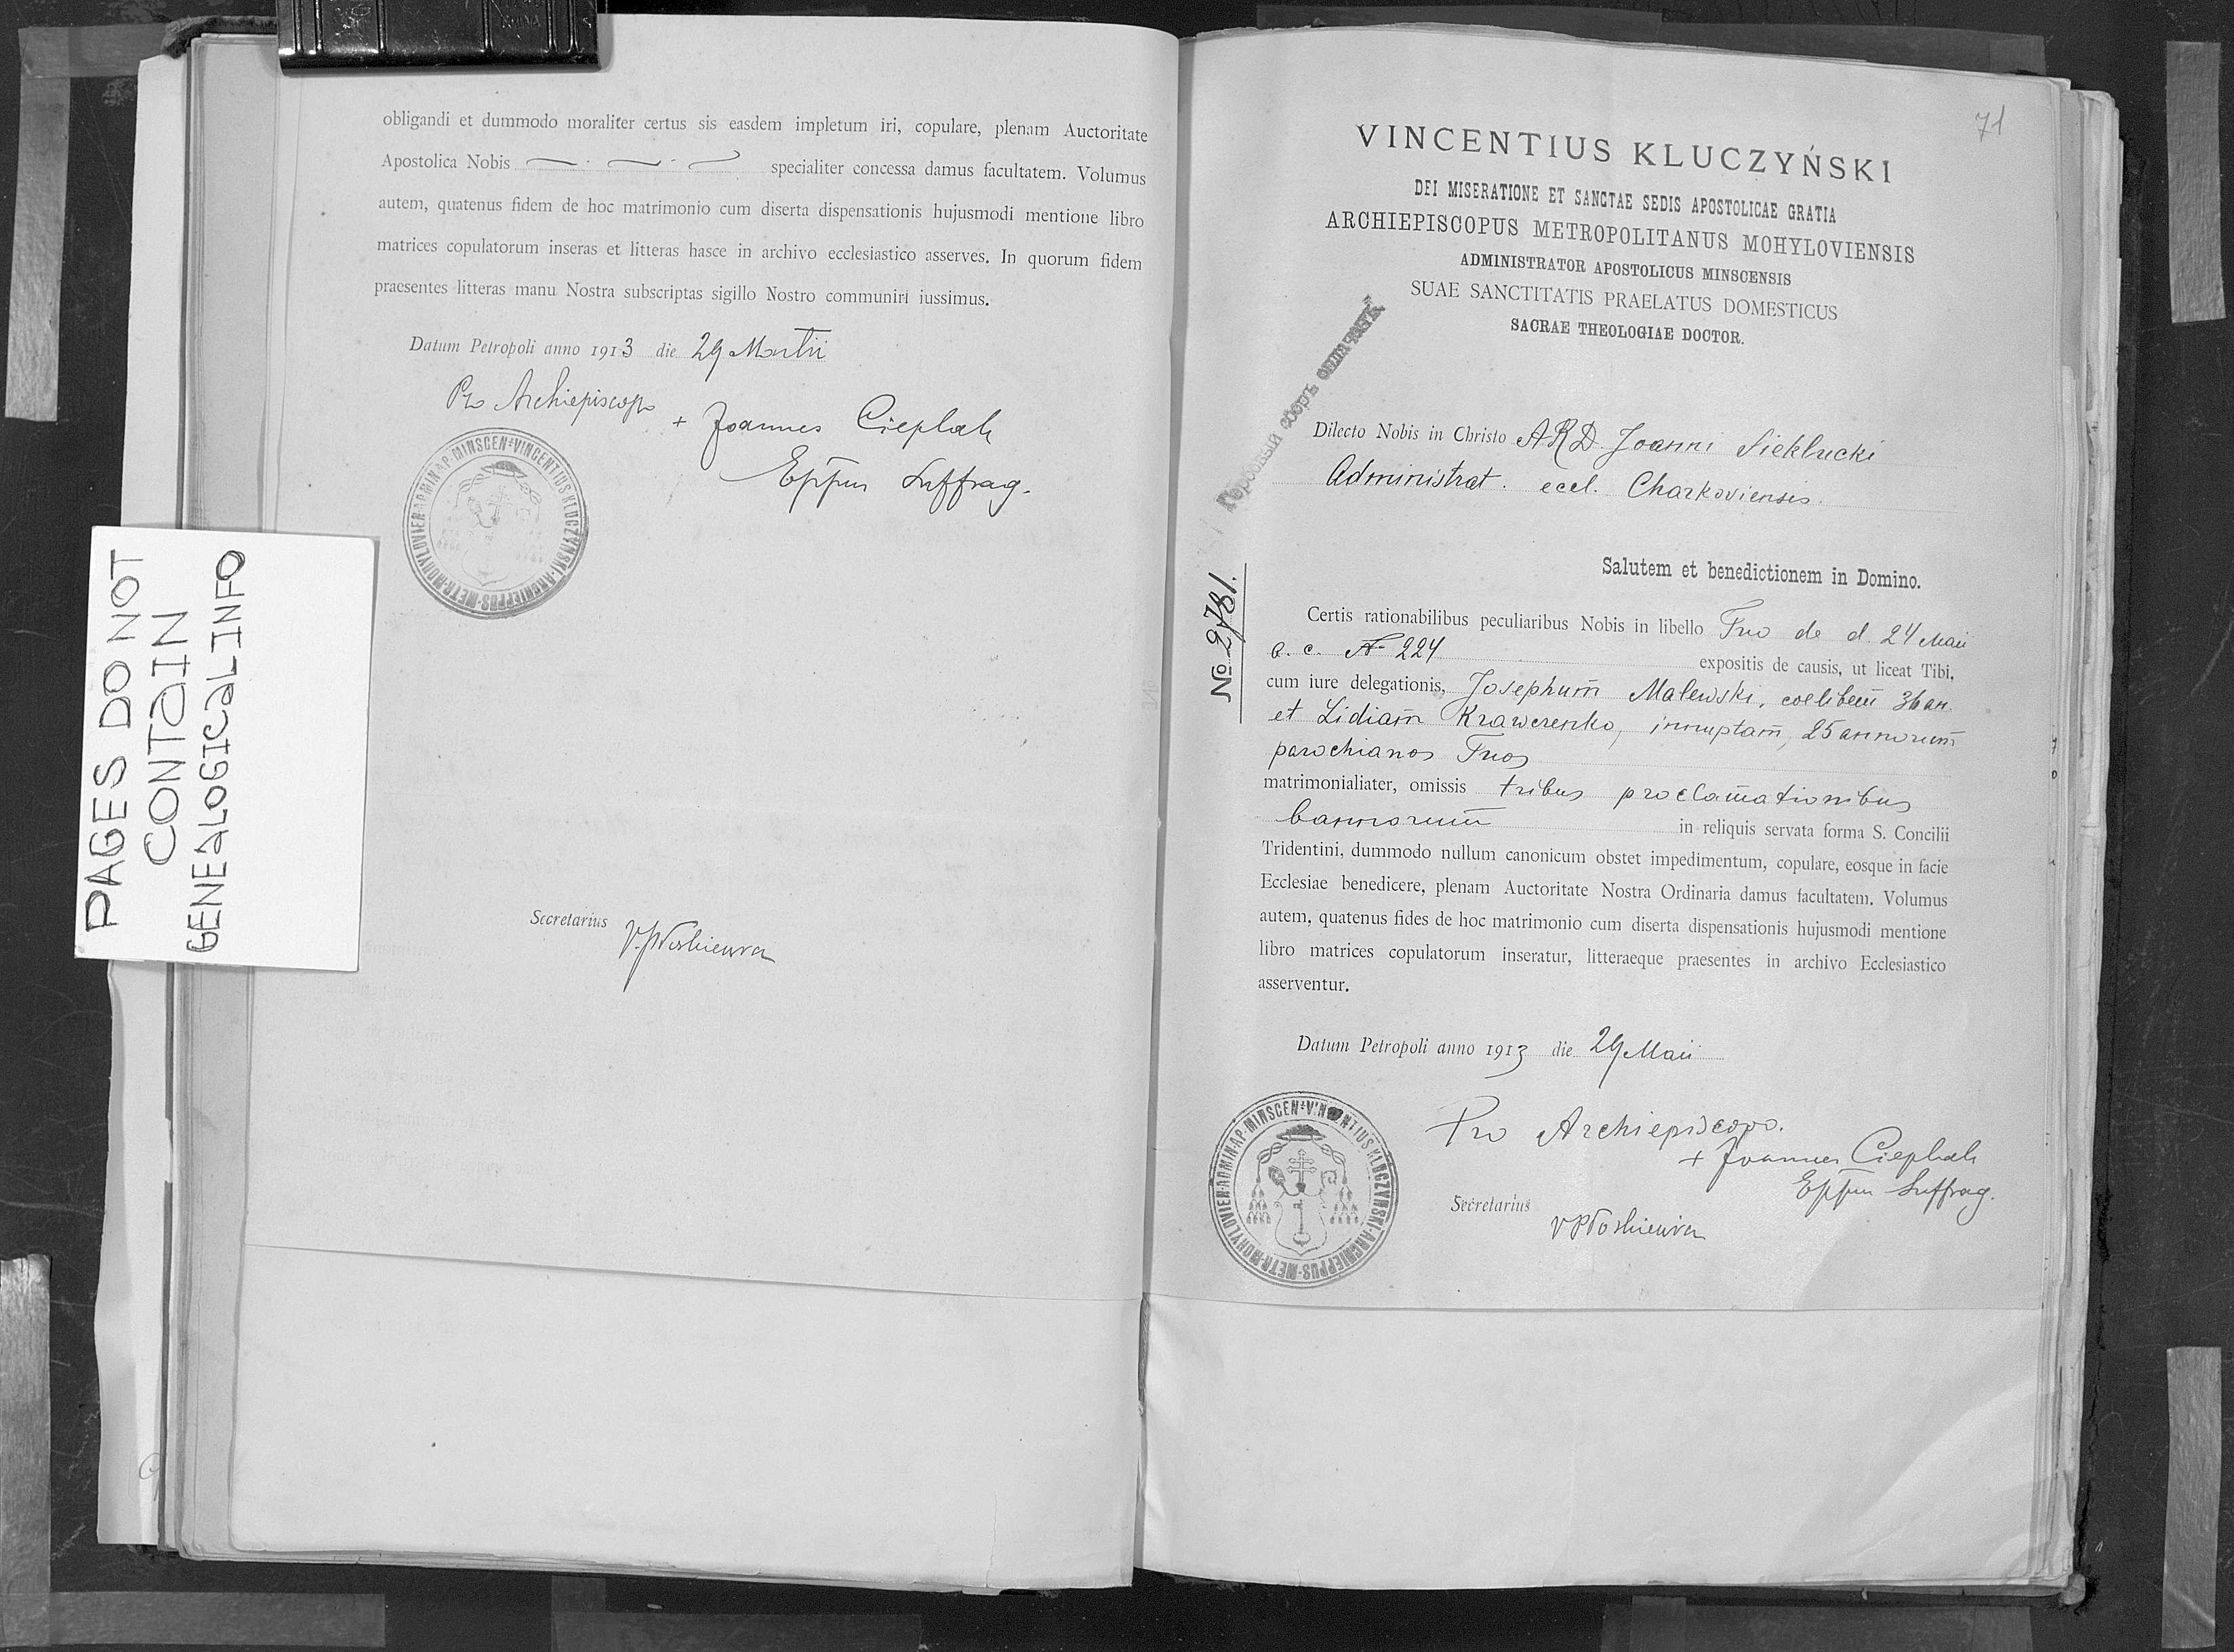 obligandi et dummodo moraliter certus sis easdem impletum iri, copulare, plenam Auctoritate
Apostolica Nobis specialiter concessa damus facultatem. Volumus
autem, quatenus fidem de hoc matrimonio cum diserta dispensationis hujusmodi mentione libro
matrices copulatorum inseras et litteras hasce in archivo ecclesiastico asserves. In quorum fidem
praesentes litteras manu Nostra subscriptas sigillo Nostro communiri iussimus.
Datum Petropoli anno 1913 die 29 Martii
Pro Archiepiscopo
+ Joannes Cieplak
Eppus Suffrag.
VINCENTIUS KLUCZYNSKI ARCHIEPPUS METR MOHYLOVIEN ADMIN AP MINSCEN
PAGES DO NOT
CONTAIN
GENEALOGICAL INFO
Secretarius
71
VINCENTIUS KLUCZYŃSKI
DEI MISERATIONE ET SANCTAE SEDIS APOSTOLICAE GRATIA
ARCHIEPISCOPUS METROPOLITANUS MOHYLOVIENSIS
ADMINISTRATOR APOSTOLICUS MINSCENSIS
SUAE SANCTITATIS PRAELATUS DOMESTICUS
SACRAE THEOLOGIAE DOCTOR.
Гербовый сборъ оплаченъ
Dilecto Nobis in Christo ARD. Joanni Sieklucki
Administrat. eccl. Charkoviensis.
Salutem et benedictionem in Domino.
№ 2781.
Certis rationabilibus peculiaribus Nobis in libello Tuo de d. 24 Maii
a. c. № 224 expositis de causis, ut liceat Tibi,
cum iure delegationis, Josephum̄ Malewski, coelibem̄ 36 an.
et Lidiam̄ Krawczenko, innuptam̄, 25 annorum̄
parochianos Tuos
matrimonialiater, omissis tribus proclamationibus
bannorum̄ in reliquis servata forma S. Concilii
Tridentini, dummodo nullum canonicum obstet impedimentum, copulare, eosque in facie
Ecclesiae benedicere, plenam Auctoritate Nostra Ordinaria damus facultatem. Volumus
autem, quatenus fides de hoc matrimonio cum diserta dispensationis hujusmodi mentione
libro matrices copulatorum inseratur, litteraeque praesentes in archivo Ecclesiastico
asserventur.
Datum Petropoli anno 1913 die 29 Maii
Pro Archiepiscopo.
+ Joannes Cieplak
Eppus Suffrag.
Secretarius
VINCENTIUS KLUCZYNSKI ARCHIEPPUS METR MOHYLOVIEN ADMIN AP MINSCEN